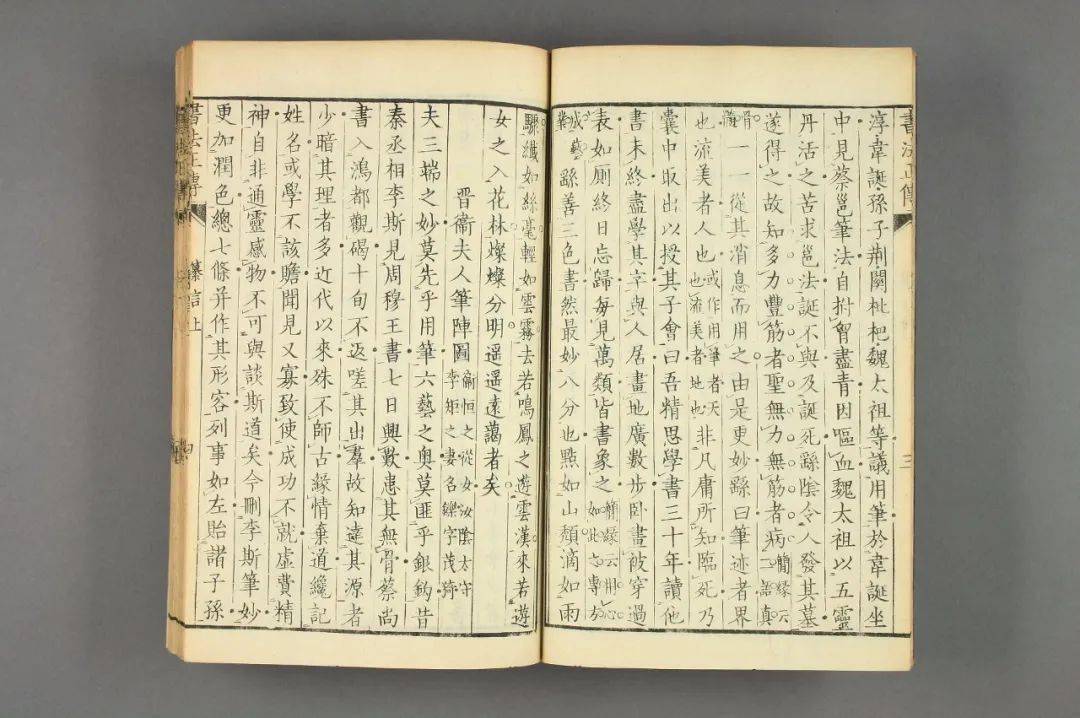 書法正傳 三
淳韋誕孫子荆關枇杷魏太祖等議用筆於韋誕坐
中見蔡邕筆法自拊胷盡青因嘔血魏太祖以五靈
丹活之苦求邕法誕不與及誕死繇陰令人發其墓
遂得之故知多力豐筋者聖無力無筋者病簡縁云二語真
骨髓一一從其消息而用之由是更妙繇曰筆迹者界
也流美者人也或作用筆者天也流美者地也非凡庸所知臨死乃
囊中取出以授其子會曰吾精思學書三十年讀他
書未終盡學其字與人居畫地廣數步卧畫被穿過
表如厠終日忘歸每見萬類皆書象之簡縁云用心如此之專方
成藝繇善三色書然最妙八分也點如山頽滴如雨
驟纎如絲毫輕如雲霧去若鳴鳳之遊雲漢來若遊
女之入花林燦燦分明遥遥遠藹者矣
晉衞夫人筆陣圖衞恒之從女汝陰太守李矩之妻名鑠字茂漪
夫三端之妙莫先乎用筆六藝之奥莫匪乎銀鈎昔
秦丞相李斯見周穆王書七日興歎患其無骨蔡尚
書入鴻都觀碣十旬不返嗟其出羣故知達其源者
少暗其理者多近代以來殊不師古縁情棄道纔記
姓名或學不該贍聞見又寡致使成功不就虚費精
神自非通靈感物不可與談斯道矣今刪李斯筆妙
更加潤色總七條并作其形容列事如左貽諸子孫
書法正傳 纂言上